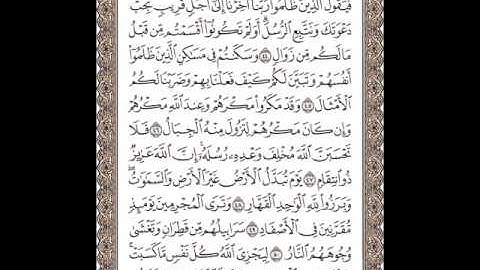 فَيَقُولُ الَّذِينَ ظَلَمُوا رَبَّنَا أَخِّرْنَا إِلَىٰ أَجَلٍ قَرِيبٍ نُجِبْ
دَعْوَتَكَ وَنَتَّبِعِ الرُّسُلَ أَوَلَمْ تَكُونُوا أَقْسَمْتُمْ مِنْ قَبْلُ
مَا لَكُمْ مِنْ زَوَالٍ ٤٤ وَسَكَنْتُمْ فِي مَسَاكِنِ الَّذِينَ ظَلَمُوا
أَنْفُسَهُمْ وَتَبَيَّنَ لَكُمْ كَيْفَ فَعَلْنَا بِهِمْ وَضَرَبْنَا لَكُمُ
الْأَمْثَالَ ٤٥ وَقَدْ مَكَرُوا مَكْرَهُمْ وَعِنْدَ اللَّهِ مَكْرُهُمْ
وَإِنْ كَانَ مَكْرُهُمْ لِتَزُولَ مِنْهُ الْجِبَالُ ٤٦ فَلَا
تَحْسَبَنَّ اللَّهَ مُخْلِفَ وَعْدِهِ رُسُلَهُ إِنَّ اللَّهَ عَزِيزٌ
ذُو انْتِقَامٍ ٤٧ يَوْمَ تُبَدَّلُ الْأَرْضُ غَيْرَ الْأَرْضِ وَالسَّمَاوَاتُ
وَبَرَزُوا لِلَّهِ الْوَاحِدِ الْقَهَّارِ ٤٨ وَتَرَى الْمُجْرِمِينَ يَوْمَئِذٍ
مُقَرَّنِينَ فِي الْأَصْفَادِ ٤٩ سَرَابِيلُهُمْ مِنْ قَطِرَانٍ وَتَغْشَىٰ
وُجُوهَهُمُ النَّارُ ٥٠ لِيَجْزِيَ اللَّهُ كُلَّ نَفْسٍ مَا كَسَبَتْ